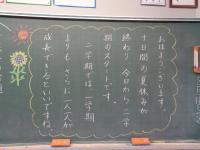 おはようございます。
十日間の夏休みが
終わり、今日から二学
期のスタートです。
二学期では一学期
よりも、さらに一人一人が
成長できるといいですね。